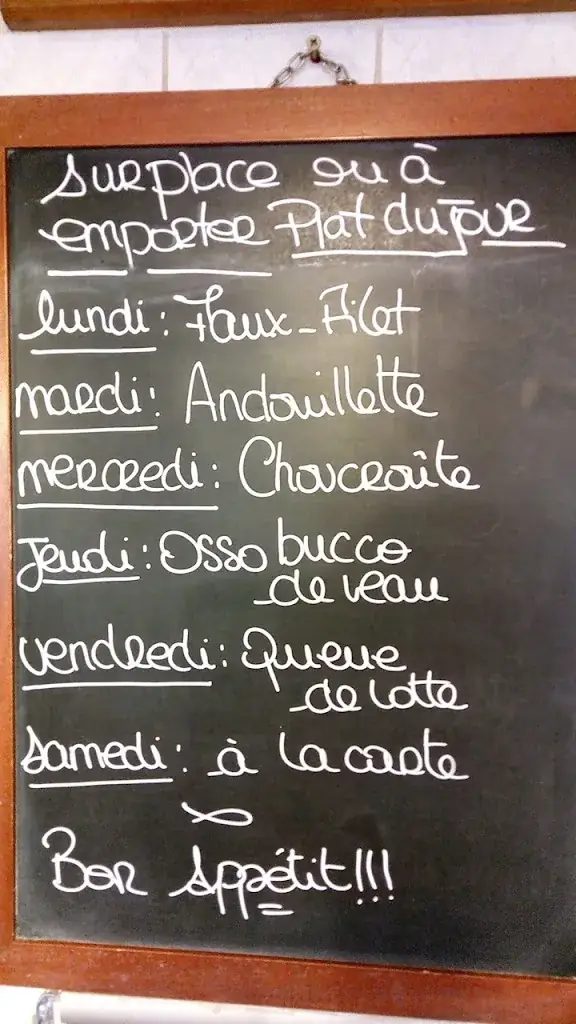 Sur place ou à
emporter Plat du Jour
lundi : Faux-Filet
mardi : Andouillette
mercredi : Choucroûte
Jeudi : Osso bucco
de veau
vendredi : Queue
de lotte
Samedi : à la carte
Bon Appétit!!!